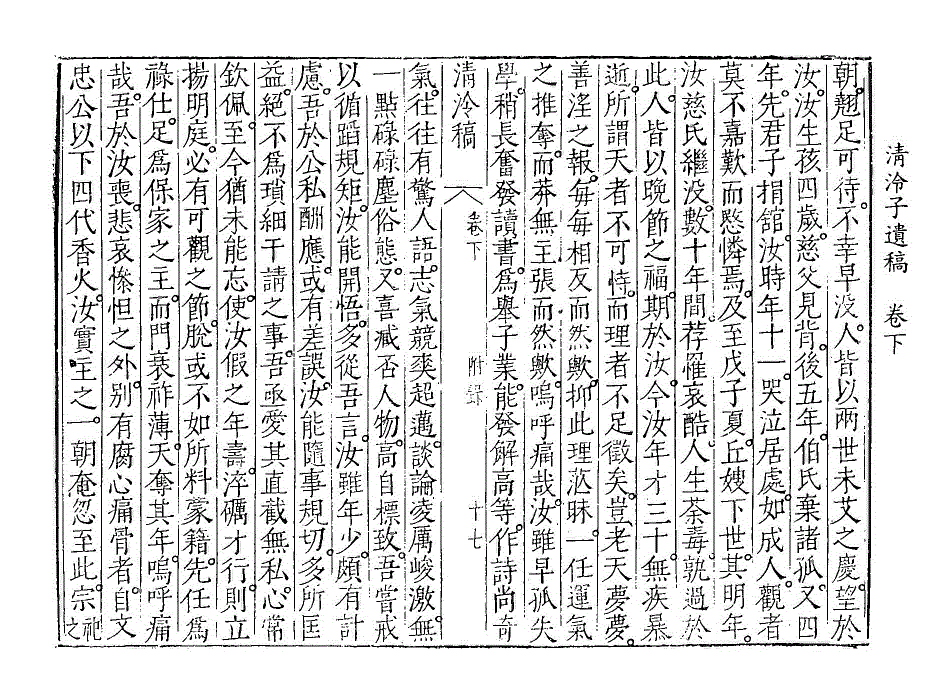 清泠子遺稿 卷下
朝。翹足可待。不幸早没。人皆以兩世未艾之慶。望於
汝。汝生孩四歲。慈父見背。後五年。伯氏棄諸孤。又四
年。先君子捐舘。汝時年十一。哭泣居處。如成人。觀者
莫不嘉歎而愍憐焉。及至戊子夏。丘嫂下世。其明年。
汝慈氏繼没。數十年間。荐罹哀酷。人生荼毒。孰過於
此。人皆以晩節之福。期於汝。今汝年才三十。無疾暴
逝。所謂天者不可恃。而理者不足徵矣。豈老天夢夢。
善淫之報。每每相反而然歟。抑此理茫昧。一任運氣
之推奪。而莽無主張而然歟。嗚呼痛哉。汝雖早孤失
學。稍長奮發讀書。爲擧子業。能發解高等。作詩尙奇
清泠稿 卷下 附錄 十七
氣。往往有驚人語。志氣競爽超邁。談論凌厲峻激。無
一點碌碌塵俗態。又喜臧否人物。高自標致。吾嘗戒
以循蹈規矩。汝能開悟。多從吾言。汝雖年少。頗有計
慮。吾於公私酬應。或有差誤。汝能隨事規切。多所匡
益。絕不爲瑣細干請之事。吾亟愛其直截無私。心常
欽佩。至今猶未能忘。使汝假之年壽。淬礪才行。則立
揚明庭。必有可觀之節。脫或不如所料。蒙籍先任。爲
祿仕。足爲保家之主。而門衰祚薄。天奪其年。嗚呼痛
哉。吾於汝喪。悲哀慘怛之外。别有腐心痛骨者。自文
忠公以下四代香火。汝實主之。一朝奄忽至此。宗祀之